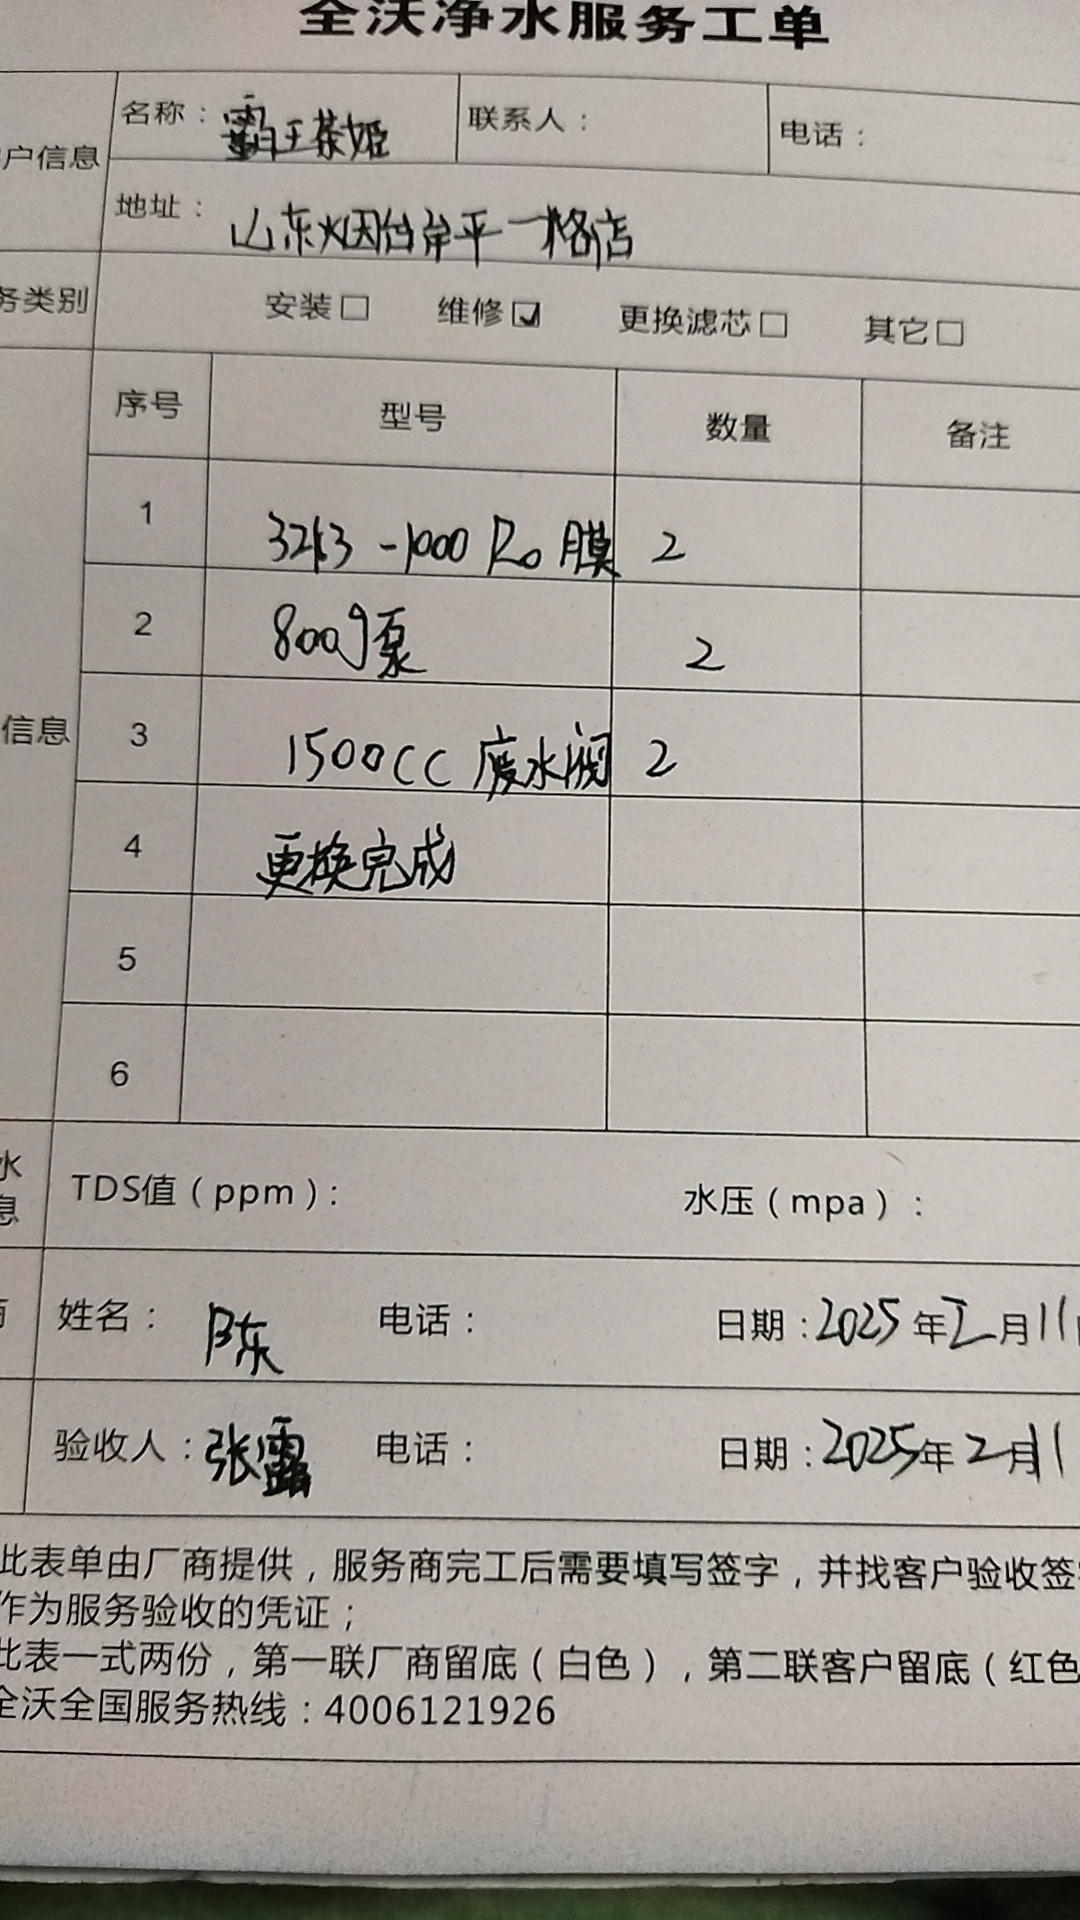 全沃净水服务工单
户信息 名称：霸王茶姬 联系人： 电话：
地址：山东烟台 平一格店
务类别 安装□ 维修☑ 更换滤芯□ 其它□
序号 型号 数量 备注
1 3213-1000 Ro膜 2
2 800g泵 2
信息 3 1500CC 废水阀 2
4 更换完成
5
6
水
息
TDS值（ppm）： 水压（mpa）：
姓名：陈 电话： 日期：2025年2月11
验收人：张露 电话： 日期：2025年2月11
此表单由厂商提供，服务商完工后需要填写签字，并找客户验收签
作为服务验收的凭证；
此表一式两份，第一联厂商留底（白色），第二联客户留底（红色
全沃全国服务热线：4006121926